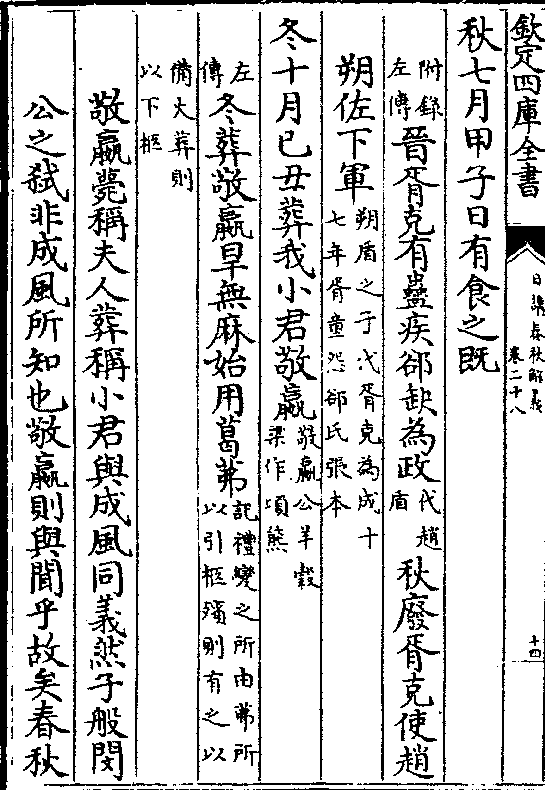 欽定四庫全書
日講春秋解義
卷二十八
十四
秋七月甲子日有食之既
附錄
左傳
晉胥克有蠱疾郤缺為政
代趙
盾
秋廢胥克使趙
朔佐下軍
朔盾之子代胥克為成十
七年胥童怨郤氏張本
冬十月己丑葬我小君敬嬴
敬嬴公羊穀
梁作項熊
左
傳
冬葬敬嬴旱無麻始用葛茀
記禮變之所由茀所
以引柩殯則有之以
備火葬則
以下柩
敬嬴薨稱夫人葬稱小君與成風同義然子般閔
公之弑非成風所知也敬嬴則與聞乎故矣春秋